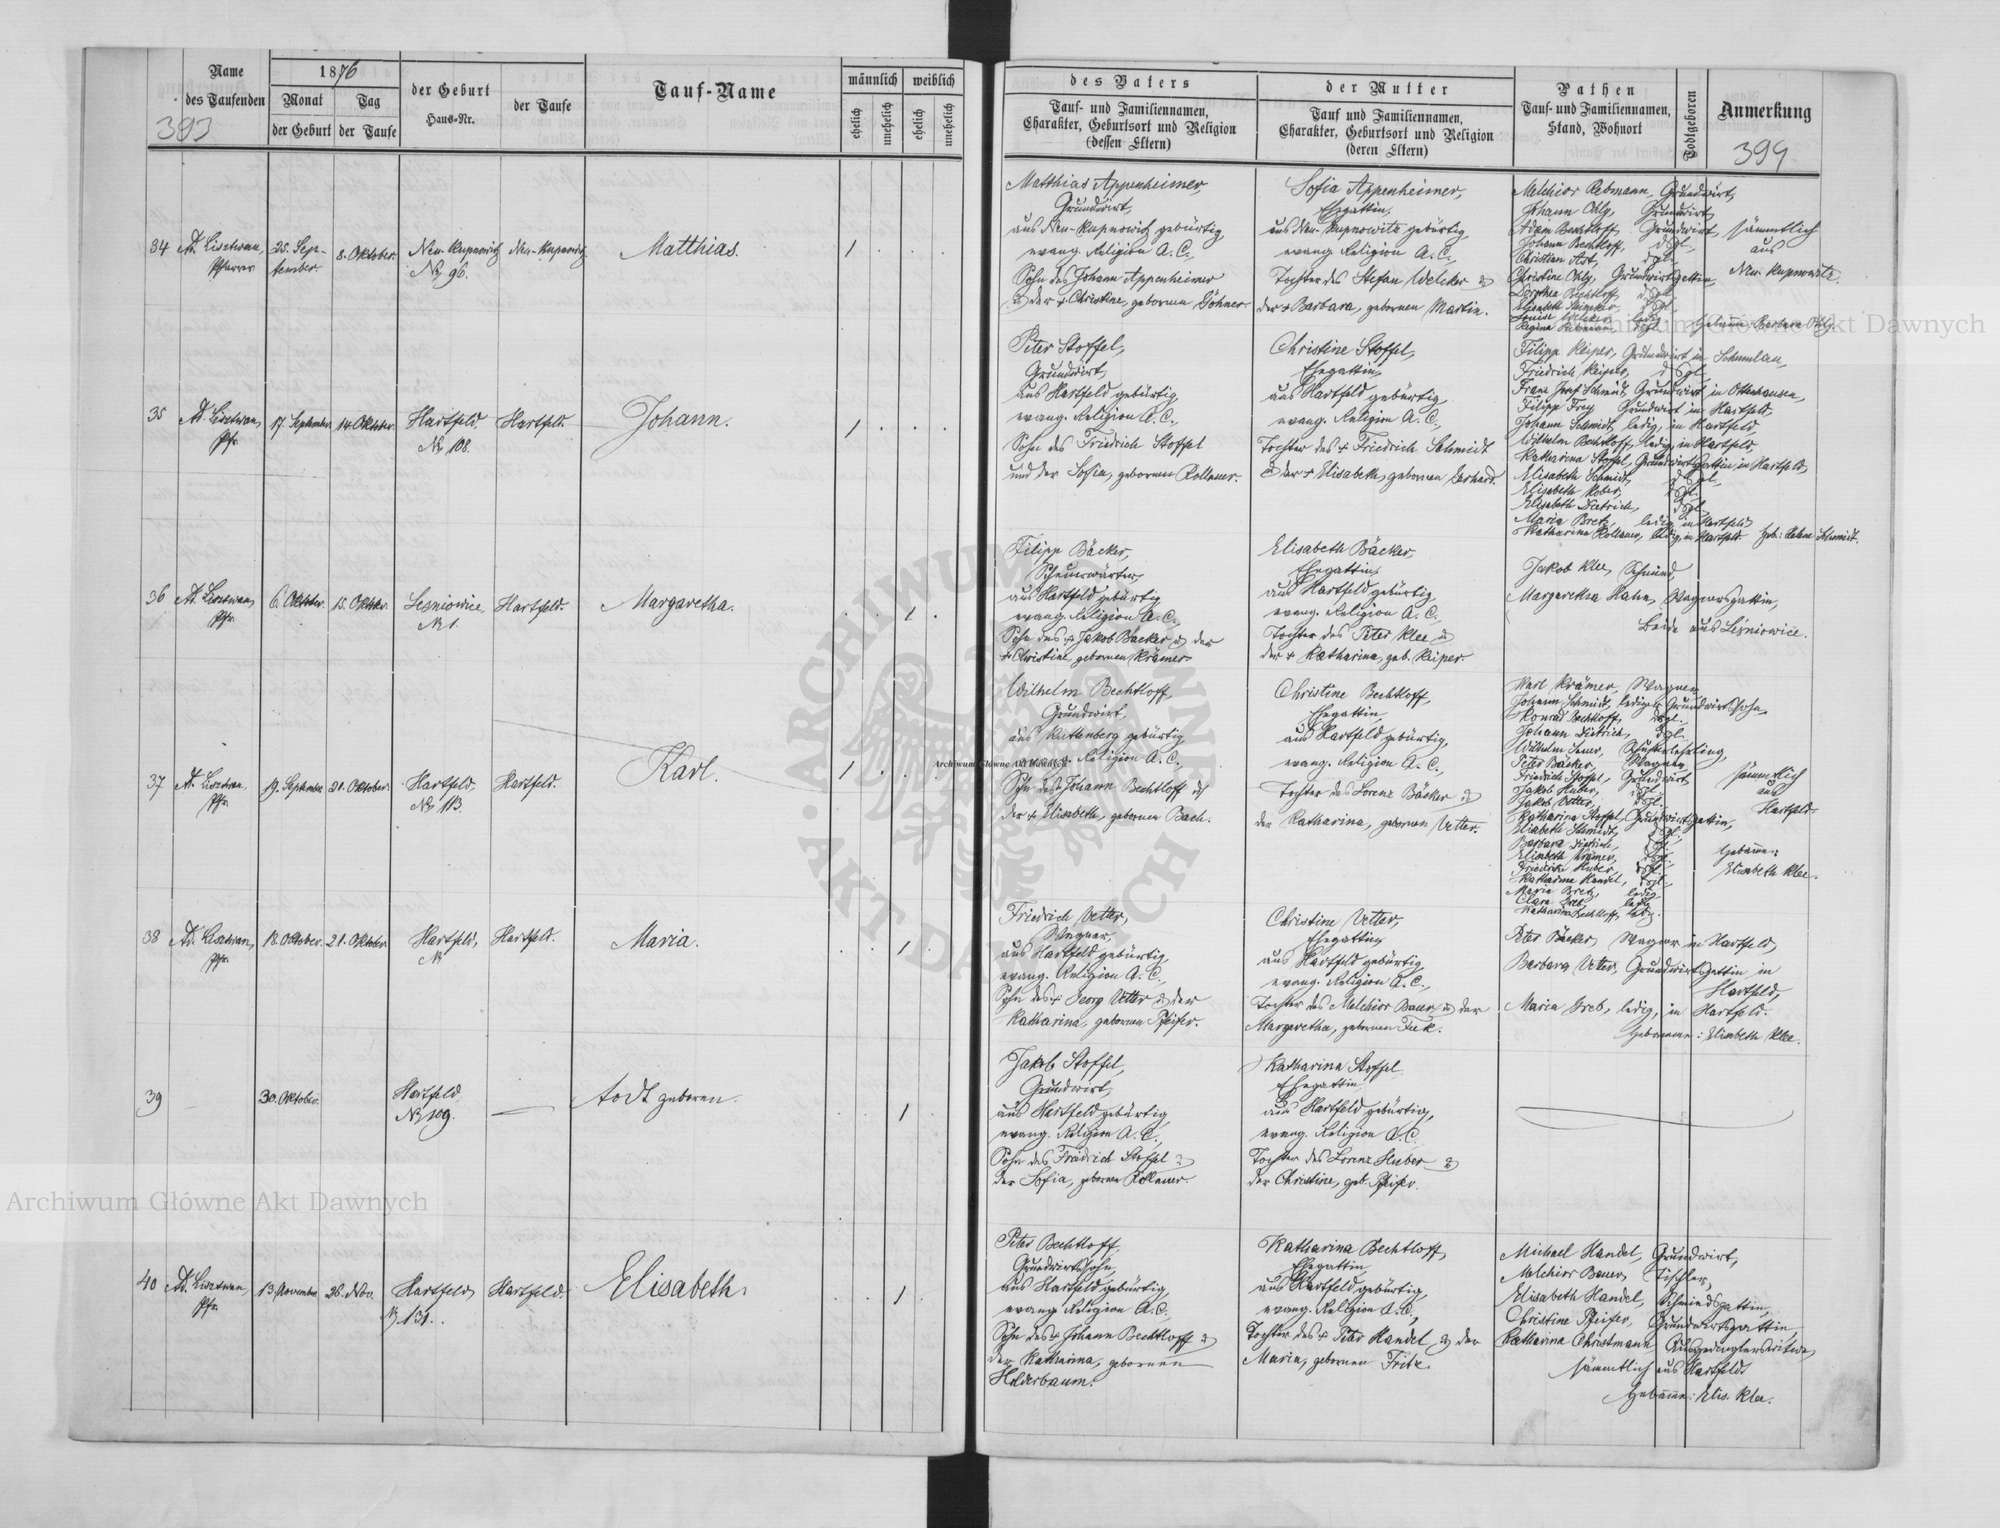 Name
des Taufenden
393
1876
Monat
Tag
der Geburt
der Taufe
der Geburt
Haus-Nr.
der Taufe
Tauf-Name
männlich
weiblich
ehelich
unehelich
ehelich
unehelich
des Vaters
Tauf- und Familiennamen,
Charakter, Geburtsort und Religion
(dessen Eltern)
der Mutter
Tauf und Familiennamen,
Charakter, Geburtsort und Religion
(deren Eltern)
Pathen
Tauf- und Familiennamen,
Stand, Wohnort
Todtgeboren
Anmerkung
394
34
Pfarrer
25. Sep-
tember.
8. Oktober.
Neu-Kupnowitz
№ 96.
Neu-Kupnowitz
Matthias.
1
Matthias Appenheimer,
Grundwirt,
aus Neu-Kupnowitz gebürtig
evang. Religion A. C.,
Sohn des Johann Appenheimer
Christine, gebornen Göhner.
Sofia Appenheimer,
Ehegattin,
aus Neu-Kupnowitz gebürtig
evang. Religion A. C.,
Tochter des Stefan Welcker
der + Barbara, gebornen Martin.
Melchior Rebmann, Grundwirt,
Johann Ohly, Grundwirt,
Adam Bechtloff, Grundwirt,
Johann Bechtloff, dsgl.
Christine Ohly, Grundwirtsgattin,
Dorothea Bechtloff, dsgl.
sämmtlich
aus
Neu-Kupnowitz.
Barbara Ohly.
35
Pfr.
17. September.
14. Oktober.
Hartfeld
№ 108.
Hartfeld.
Johann.
1
Peter Stoffel,
Grundwirt,
aus Hartfeld gebürtig,
evang. Religion A. C.,
Sohn des Friedrich Stoffel
und der Sofia, gebornen Kollauer.
Christine Stoffel,
Ehegattin,
aus Hartfeld gebürtig,
evang. Religion A. C.,
Tochter des + Friedrich Schmidt
der + Elisabeth, gebornen
Filipp Keiper, Grundwirt in
Friedrich Keiper, dsgl.
Franz Josef Schmidt, Grundwirt in Ottenhausen,
Filipp Frey Grundwirt in Hartfeld
Johann Schmidt, ledig, in Hartfeld
Wilhelm Bechtloff, ledig, in Hartfeld,
Katharina Stoffel, Grundwirtsgattin, in Hartfeld,
Elisabeth Schmidt, dsgl.
Elisabeth Huber, dsgl.
Elisabeth Dietrich, dsgl.
Maria Bretz, ledig, in Hartfeld
Katharina Kollauer, ledig, in Hartfeld
36
Pfr.
6. Oktober.
15. Oktober.
Leśniowice
№ 1.
Hartfeld.
Margaretha.
1
Filipp Bäcker,
Scheuerwärter,
aus Hartfeld gebürtig
evang. Religion A. C.
Sohn des + Jakob Bäcker & der
+ Christine, gebornen Krämer.
Elisabeth Bäcker,
Ehegattin,
aus Hartfeld gebürtig,
evang. Religion A. C.,
Tochter des Peter Klee &
der + Katharina, geb. Keiper.
Jakob Klee, Schmied,
Margaretha Hahn, Wagnersgattin,
Beide aus Leśniowice.
37
Pfr.
19. September
21. Oktober.
Hartfeld,
№ 113.
Hartfeld.
Karl.
1
Wilhelm Bechtloff,
Grundwirt,
aus Kattenberg gebürtig,
evang. Religion A. C.,
Sohn des + Johann Bechtloff &
der + Elisabeth, gebornen Bach.
Christine Bechtloff,
Ehegattin,
aus Hartfeld gebürtig,
evang. Religion A. C.,
Tochter des Lorenz Bäcker &
der Katharina, gebornen Vetter.
Karl Krämer, Wagner,
Johann Schmidt, lediger Grundwirtssohn,
Konrad Bechtloff, dsgl.
Johann Dietrich, dsgl.
Peter Bäcker, Wagner,
Friedrich Stoffel, Grundwirt,
Jakob Huber, dsgl.
Jakob Vetter, dsgl.
Katharina Stoffel, Grundwirtsgattin,
Elisabeth Schmidt, dsgl.
Barbara Dietrich, dsgl.
Elisabeth Krämer, dsgl.
Friedrike Huber, dsgl.
Katharina Handel, dsgl.
Maria Bretz, ledig
Katharina Bechtloff, ledig.
sämmtlich
aus
Hartfeld
Gebamme:
Elisabeth Klee.
38
Pfr.
18. Oktober.
21. Oktober
Hartfeld,
№
Hartfeld.
Maria.
1
Friedrich Vetter,
Wagner,
aus Hartfeld gebürtig
evang. Religion A. C.,
Sohn des + Georg Vetter & der
Katharina, gebornen Pfeifer.
Christine Vetter,
Ehegattin,
aus Hartfeld gebürtig
evang. Religion A. C.,
Tochter des Melchior Bauer & der
Margaretha, gebornen
Peter Bäcker, Wagner in Hartfeld,
Barbara Vetter, Grundwirtsgattin in
Hartfeld,
Maria ledig, in Hartfeld.
Gebamme: Elisabeth Klee.
39
30. Oktober.
Hartfeld
№ 109.
todt geboren.
1
Jakob Stoffel,
Grundwirt,
aus Hartfeld gebürtig
evang. Religion A. C.,
Sohn des Friedrich Stoffel &
der Sofia, geborne Kollauer.
Katharina Stoffel
Ehegattin
aus Hartfeld gebürtig,
evang. Religion A. C.
Tochter des Lorenz Huber &
der Christine, geb. Pfeifer.
40
Pfr.
13. November
26. Nov.
Hartfeld
№ 131.
Hartfeld.
Elisabeth.
1
Peter Bechtloff
Grundwirtssohn,
aus Hartfeld gebürtig,
evang. Religion A. C.
Sohn des + Johann Bechtloff &
der Katharina, gebornen
Holderbaum.
Katharina Bechtloff,
Ehegattin,
aus Hartfeld gebürtig,
evang. Religion A. C.,
Tochter des + Peter Handel & der
Maria, gebornen Fritz.
Michael Handel, Grundwirt,
Melchior Bauer, Tischler,
Elisabeth Handel, Schmiedsgattin,
Christine Pfeifer, Grundwirtsgattin
Katharina Christmann
sämmtlich aus Hartfeld
Gebamme: Elis. Klee.
Archiwum Główne Akt Dawnych
ARCHIWUM GŁÓWNE AKT DAWNYCH
Archiwum Główne Akt Dawnych
Archiwum Główne Akt Dawnych